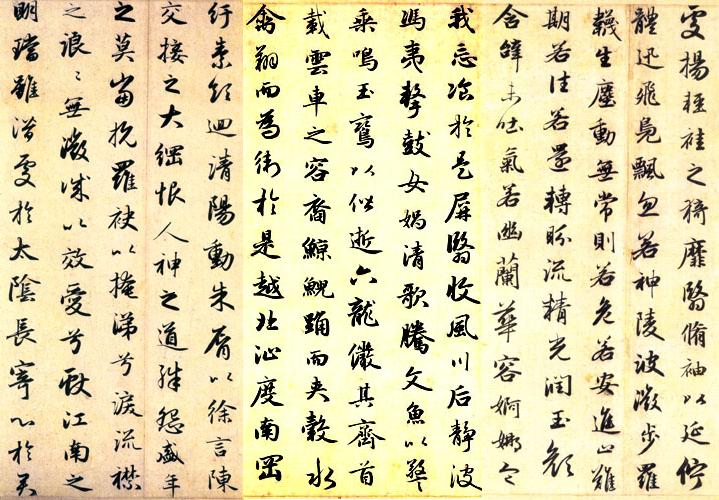 處揚輕袿之猗靡翳脩袖以延佇
體迅飛鳧飄忽若神陵波微步羅
韈生塵動無常則若危若安進止難
期若往若還轉眄流精光潤玉顏
含辭未吐氣若幽蘭華容婀娜令
我忘飡於是屏翳收風川后靜波
馮夷擊鼓女媧清歌騰文魚以警
乘鳴玉鸞以偕逝六龍儼其齊首
載雲車之容裔鯨鯢踴而夾轂水
禽翔而為衛於是越北沚度南岡
紆素領迴清陽動朱脣以徐言陳
交接之大綱恨人神之道殊怨盛年
之莫當抗羅袂以掩涕兮淚流襟
之浪〻無微誠以效愛兮獻江南之
明璫雖潛處於太陰長寄心於君